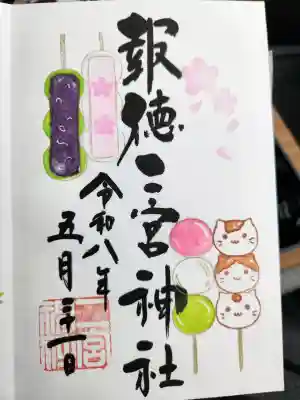 報徳二宮神社
令和八年
五月三十一日